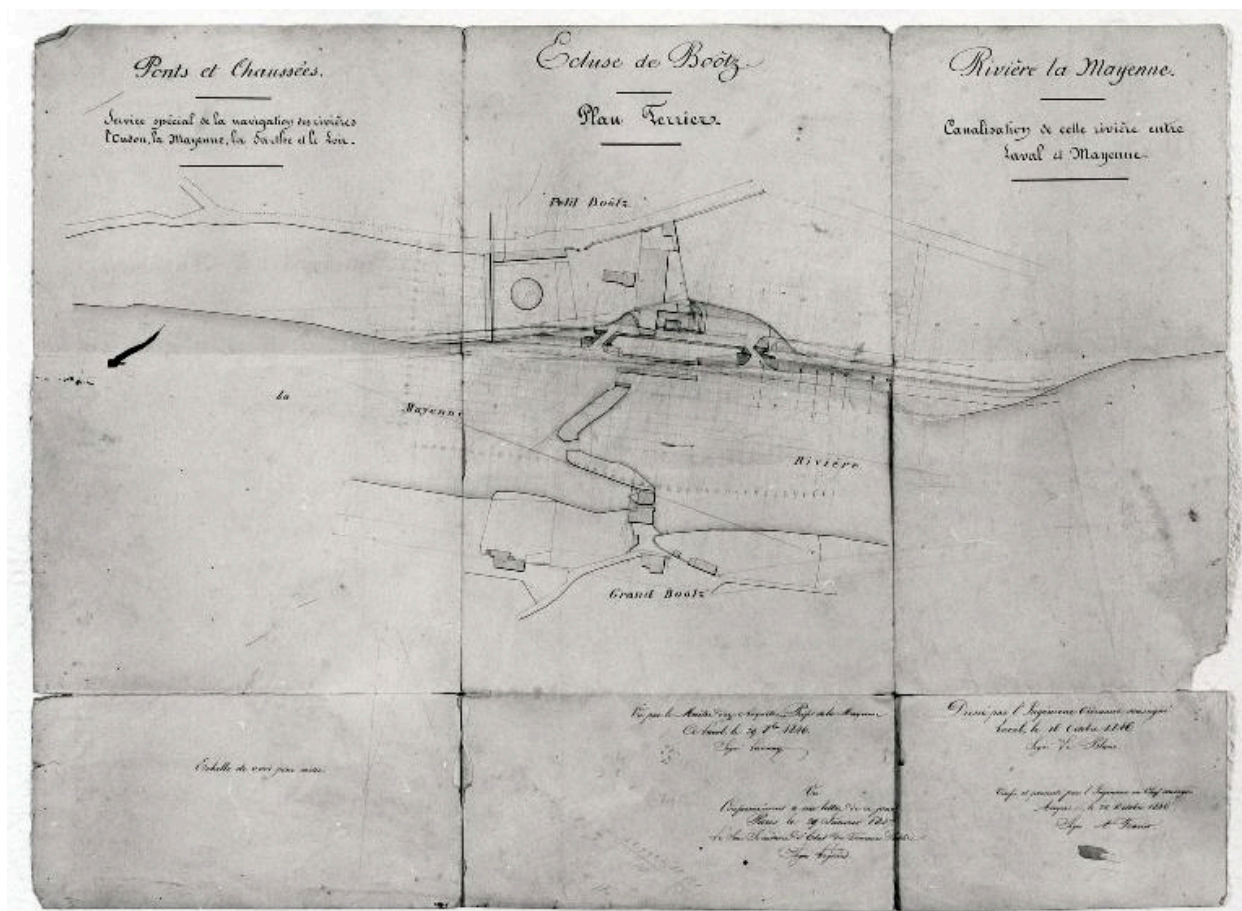 Ponts et Chaussées.
Service spécial de la navigation des rivières
l'Oudon, la Mayenne, la Sarthe et le Loir.
Ecluse de Boôtz
Plan Terrier.
Rivière la Mayenne.
Canalisation de cette rivière entre
Laval et Mayenne.
Petit Boôtz
la
Mayenne
Rivière
Grand Boôtz
Echelle de pour mètre
Vu par le Préfet de la Mayenne
Laval, le 29 1846.
Signé
Vu
Conformément à ma lettre de ce jour
Paris le 29 Janvier
Le Sre d'Etat des Travaux
Signé
Dressé par l'Ingénieur Ordinaire soussigné
Laval, le 16 Octobre 1846
Signé De Blois
Vérifié et présenté par l'Ingénieur en Chef soussigné
Angers, le 22 Octobre 1846
Signé